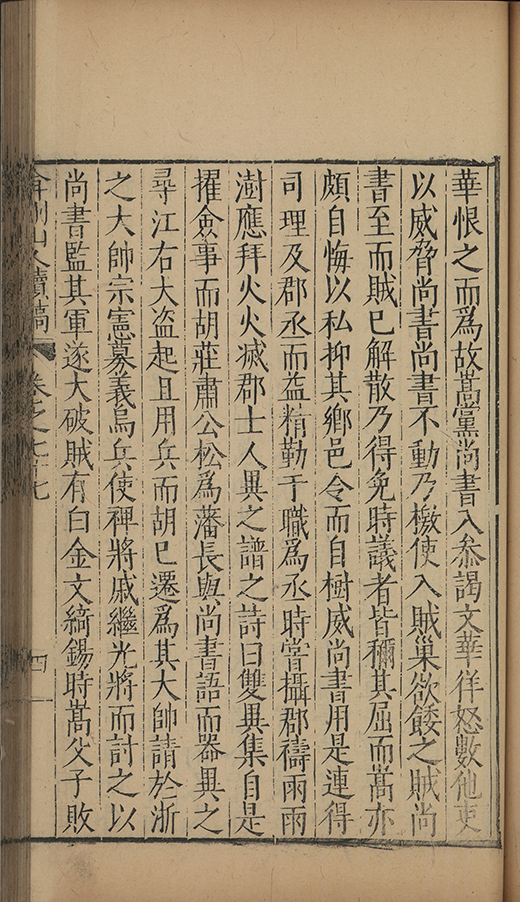 華恨之而爲故嵩黨尚書入叅謁文華佯怒數他吏
以威脅尚書尚書不動乃檄使入賊巢欲餧之賊尚
書至而賊已解散乃得免時議者皆稱其屈而嵩亦
頗自悔以私抑其鄉邑令而自樹威尚書用是連得
司理及郡丞而益精勤于職爲丞時嘗攝郡禱雨雨
澍應拜火火滅郡士人異之譜之詩曰雙異集自是
擢僉事而胡莊肅公松爲藩長與尚書語而器異之
尋江右大盗起且用兵而胡已遷爲其大帥請於浙
之大帥宗憲募義烏兵使裨將戚繼光將而討之以
尚書監其軍遂大破賊有白金文綺錫時嵩父子敗
弇州山人續稿 卷之七十七 四